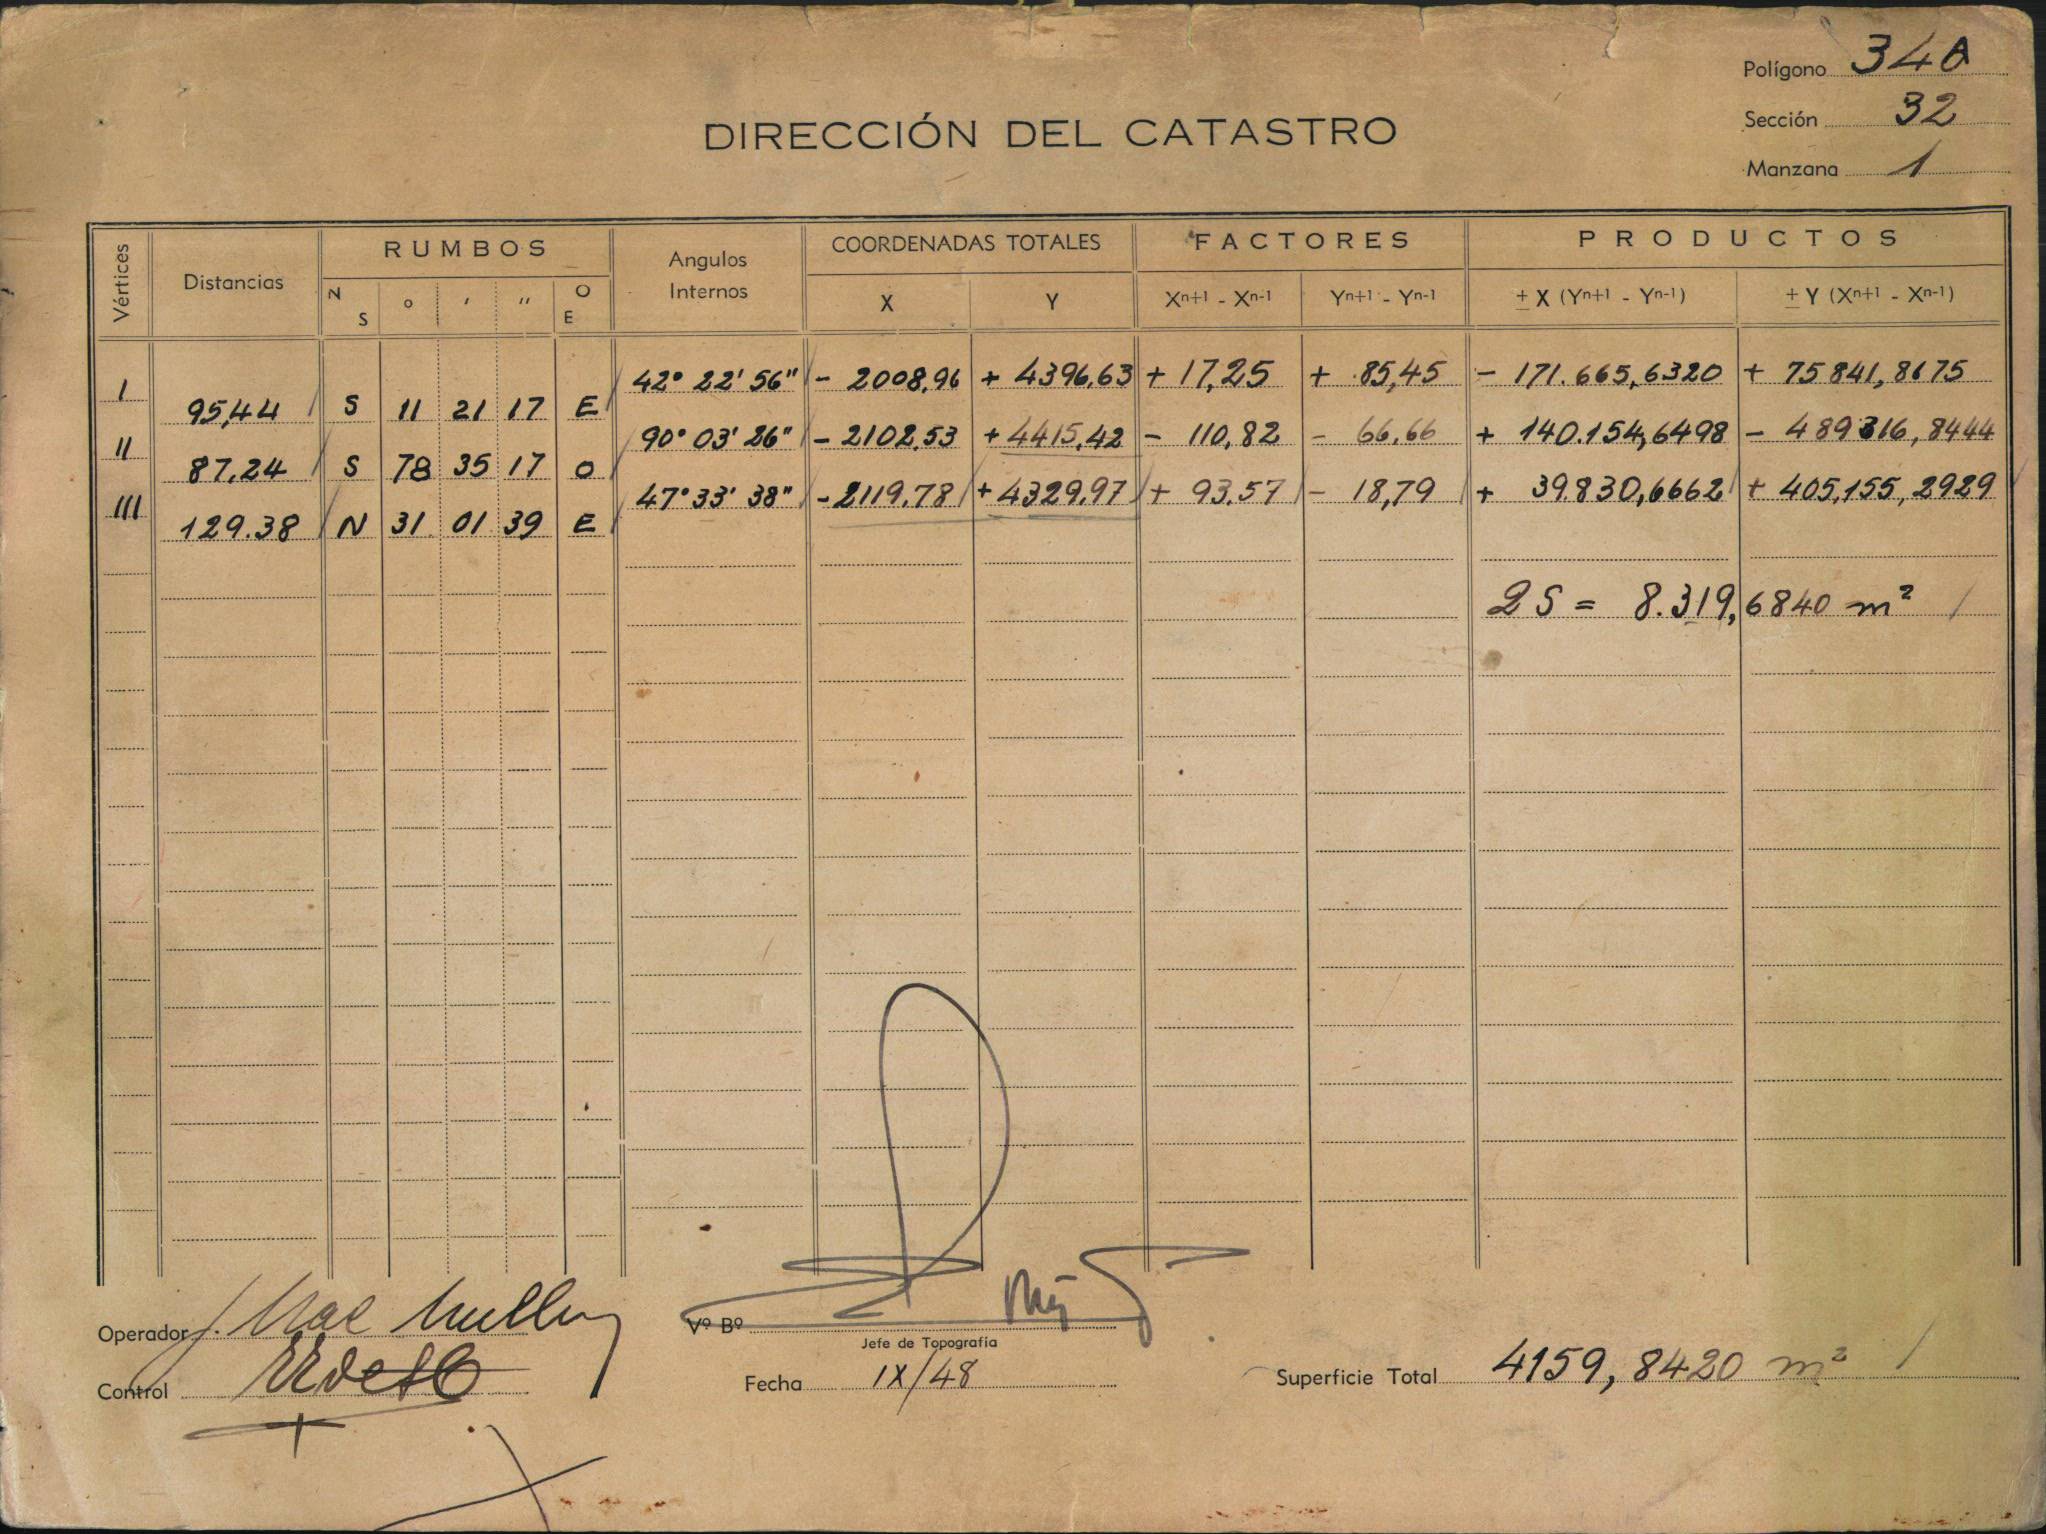 Polígono 340
Sección 32
Manzana 1
DIRECCIÓN DEL CATASTRO
Vértices Distancias RUMBOS Angulos Internos COORDENADAS TOTALES FACTORES PRODUCTOS
N S ° ' " O E X Y Xn+1 - Xn-1 Yn+1 - Yn-1 ± X (Yn+1 - Yn-1) ± Y (Xn+1 - Xn-1)
I 42° 22' 56" - 2008,96 + 4396,63 + 17,25 + 85,45 - 171.665,6320 + 75841,8675
95,44 S 11 21 17 E
II 90° 03' 26" - 2102.53 + 4415,42 - 110,82 - 66.66 + 140.154,6498 - 489316,8444
87,24 S 78 35 17 O
III 47° 33' 38" - 2119.78 + 4329,97 + 93.57 - 18,79 + 39.830,6662 + 405,155,2929
129.38 N 31 01 39 E
2 S = 8.319,6840 m²
Operador
Control
Vº Bº
Jefe de Topografía
Fecha IX/48
Superficie Total 4159,8420 m²